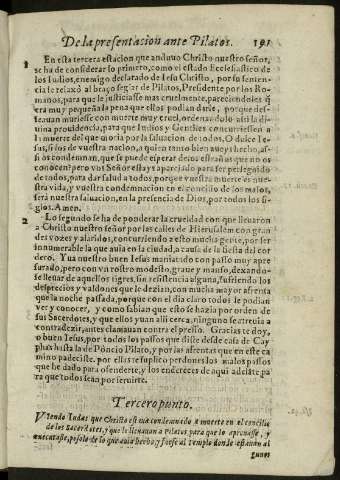 De la presentacion ante Pilatos. 191
1 En esta tercera estacion que anduuo Christo nuestro señor,
se ha de considerar lo primero, como el estado Ecclesiastico de
los Iudios, enemigo declarado de Iesu Christo, por su senten-
cia le relaxò al braço seglar de Pilatos, Presidente por los Ro-
manos, para que le justiciasse mas cruelmente, pareciendoles q̃
era muy poco la que ellos podian darle, porque des-
seauan muriesse con muerte muy cruel, ordenandolo assi la di-
uina prouidencia, para que Iudios y Gentiles concurriessen a
la muerte del que moria por la saluacion de todos. O dulce Ie-
sus, si los de vuestra nacion, a quien tanto bien aueys hecho, as-
si os condenan, que se puede esperar de los estraños que no os
conocen? pero vos Señor estays aparejado para ser perseguido
de todos, para dar salud a todos, porque vuestra muerte es nues-
tra vida, y vuestra condennacion en el concilio de los malos,
será nuestra saluacion, en la presencia de Dios, por todos los si-
glos. Amen.
2 Lo segundo se ha de ponderar la crueldad con que lleuaron
a Christo nuestro señor por las calles de Hierusalem con gran
des vozes y alaridos, concurriendo a esto mucha gente, por ser
innumerable la que auia en la ciudad, a causa de la fiesta del cor
dero. Yua nuestro buen Iesus maniatado con passo muy apre
surado, pero con vn rostro modesto, graue y manso, dexando-
se lleuar de aquellos tigres, sin resistencia alguna, sufriendo los
desprecios y valdones que le dezian, con mucha mayor afrenta
que la noche passada, porque con el dia claro todos le podian
ver y conocer, y como sabian que esto se hazia por orden de
sus Sacerdotes, y que ellos yuan alli cerca, ninguno se atreuia a
contradezir, antes clamauan contra el presso. Gracias te doy,
o buen Iesus, por todos los passos que diste desde casa de Cay
phas hasta la de Poncio Pilato, y por las afrentas que en este ca
mino padeciste. por ellas te suplico perdones los malos passos
que he dado para ofenderte, y los endereces de aqui adelante pa
ra que todos sean por seruirte.
Tercero punto.
Viendo Iudas que Christo estaua condennado a muerte en el concilio
de los Sacerdotes, y que le lleuauan a Pilatos para que lo aprouasse, y
executasse, pesole de lo que auia hecho, y fuese al templo donde estauan al
gunos